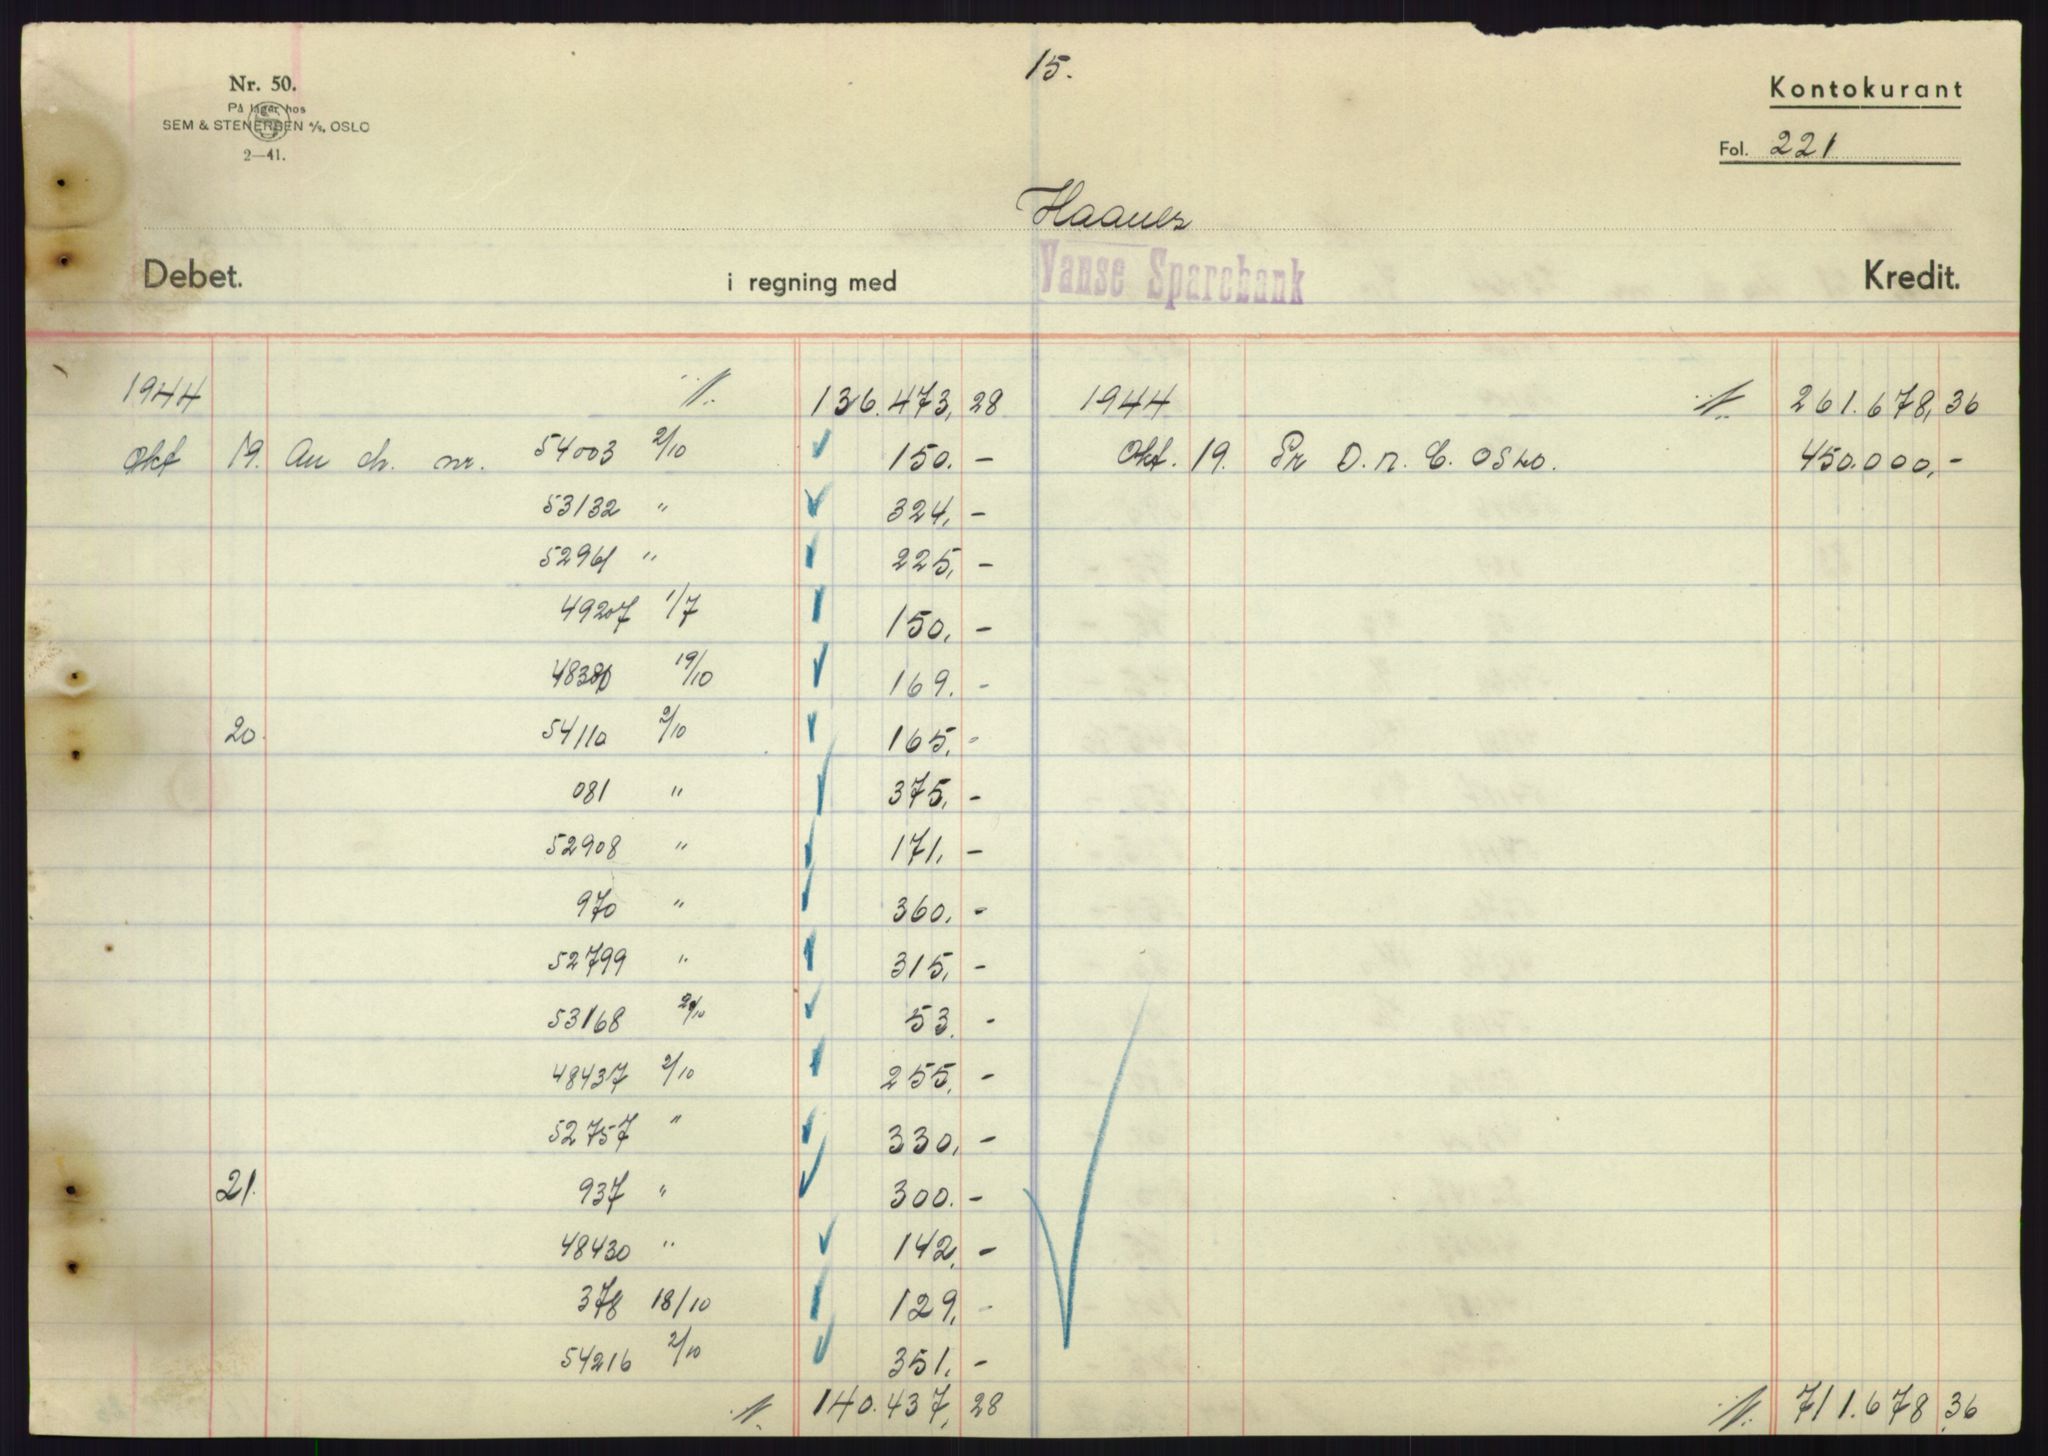 15.
Nr. 50.
På lager hos
SEM & STENERSEN A/S, OSLO
2—41.
Kontokurant
Fol. 221
Haanes
Debet. i regning med Vanse Sparebank Kredit.
1944 136.473,28 1944 261.678,36
Okt 19. An ch. nr. 54003 2/10 150.- Okt. 19. Pr D.n.C. Oslo. 450.000,-
53132 " 324,-
52961 " 225,-
49207 1/7 150,-
48380 19/10 169.-
20. 54110 2/10 165,-
081 " 375,-
52908 " 171,-
970 " 360,-
52799 " 315,-
53168 20/10 53.-
48437 2/10 255,-
52757 " 330,-
21. 937 " 300.-
48430 " 142,-
378 18/10 129,-
54216 2/10 351,-
140.437,28 711.678,36